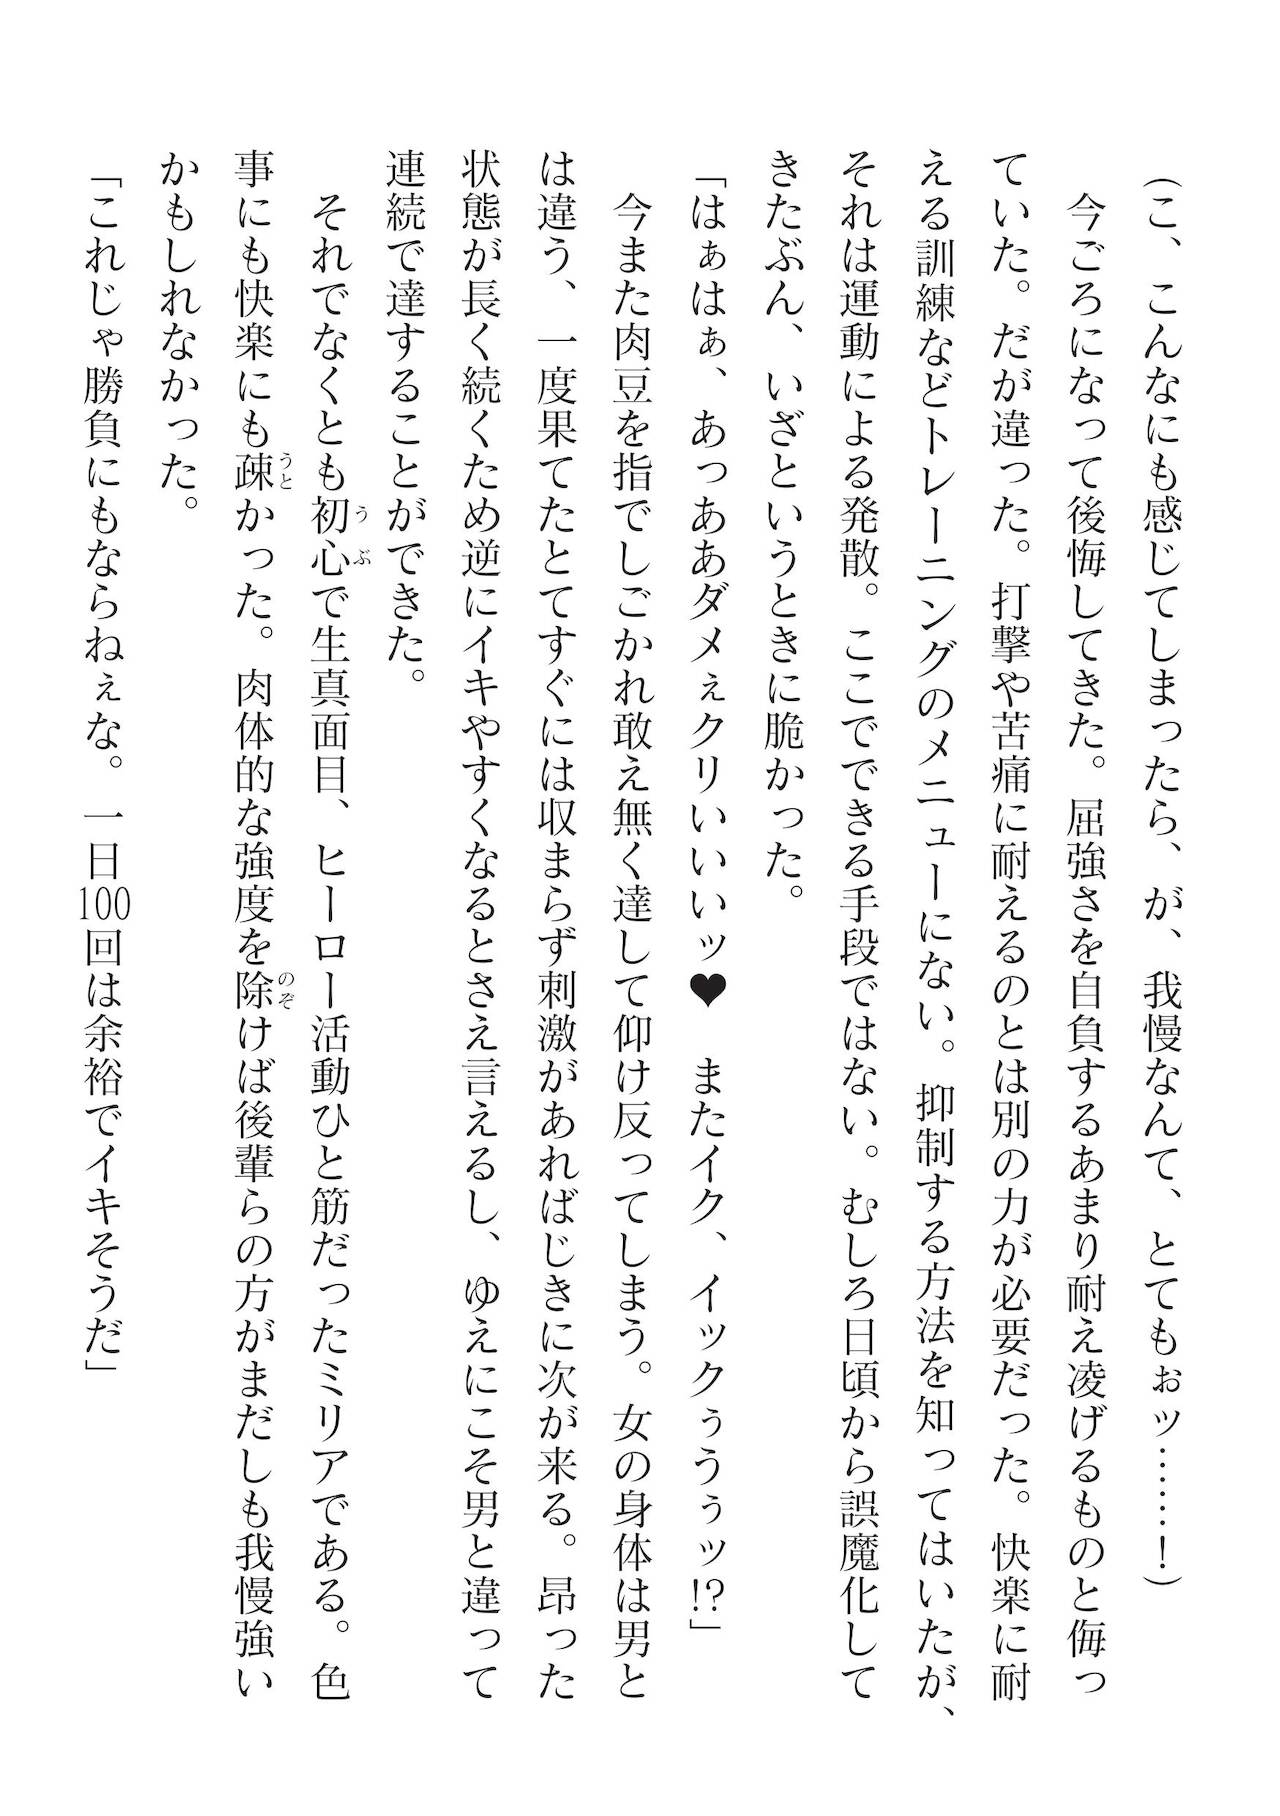 （こ、こんなにも感じてしまったら、が、我慢なんて、とてもぉッ……！）
　今ごろになって後悔してきた。屈強さを自負するあまり耐え凌げるものと侮っ
ていた。だが違った。打撃や苦痛に耐えるのとは別の力が必要だった。快楽に耐
える訓練などトレーニングのメニューにない。抑制する方法を知ってはいたが、
それは運動による発散。ここでできる手段ではない。むしろ日頃から誤魔化して
きたぶん、いざというときに脆かった。
「はぁはぁ、あっああダメぇクリいいいッ♥　またイク、イックぅうぅッ!?」
　今また肉豆を指でしごかれ敢え無く達して仰け反ってしまう。女の身体は男と
は違う、一度果てたとてすぐには収まらず刺激があればじきに次が来る。昂った
状態が長く続くため逆にイキやすくなるとさえ言えるし、ゆえにこそ男と違って
連続で達することができた。
　それでなくとも初心うぶで生真面目、ヒーロー活動ひと筋だったミリアである。色
事にも快楽にも疎うとかった。肉体的な強度を除のぞけば後輩らの方がまだしも我慢強い
かもしれなかった。
「これじゃ勝負にもならねぇな。一日100回は余裕でイキそうだ」